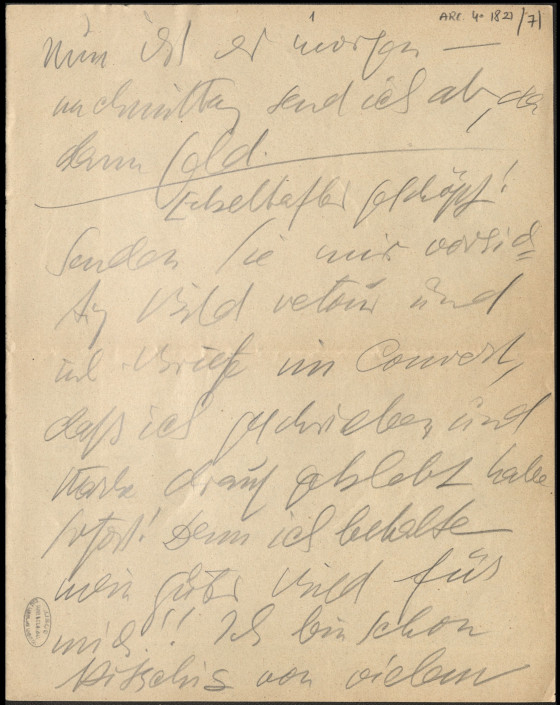 1
ARC. 4° 1821/7
Nun ist er morgen —
nachmittag send ich ab, da
dann Geld.
Ekelhaftes Geschöpf!
Senden Sie mir vorsich=
tig Bild retour und
Briefe im Couvert,
daß ich geschrieben und
Marke drauf geklebt habe
sofort! Denn ich behalte
mein gutes Bild für
mich!! Ich bin schon
von vielem